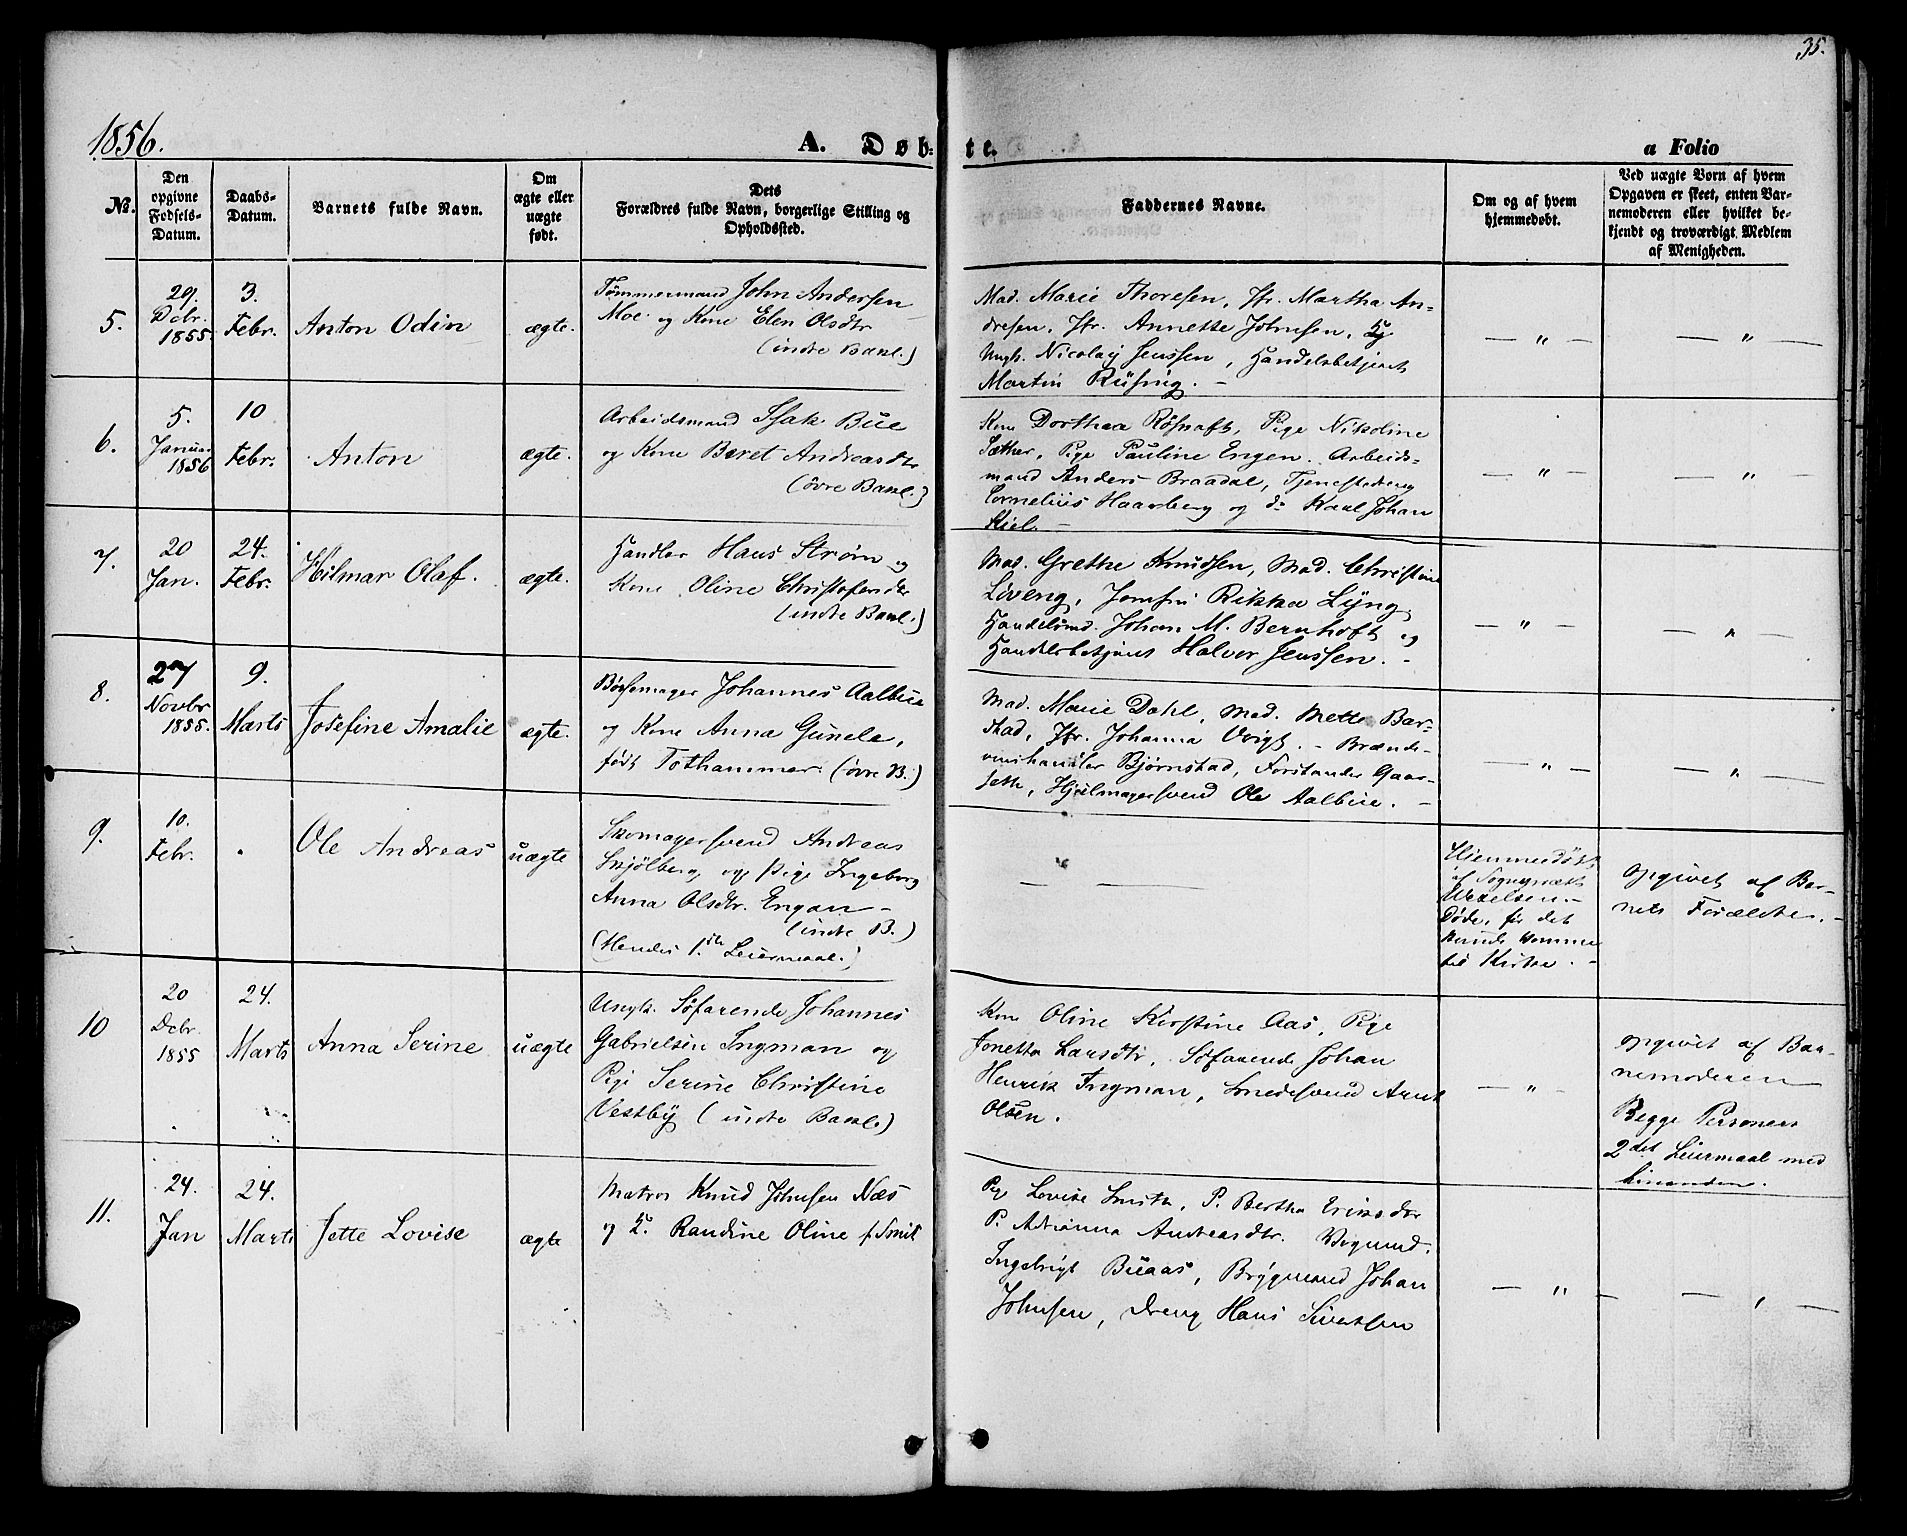 35.
1856.
A. Døbte.
a Folio
No.
Den opgivne Fødsels-Datum.
Daabs-Datum.
Barnets fulde Navn.
Om ægte eller uægte født.
Dets Forældres fulde Navn, borgerlige Stilling og Opholdssted.
Faddernes Navne.
Om og af hvem hjemmedøbt.
Ved uægte Born af hvem Opgaven er skeet, enten Barnemoderen eller hvilket bekjendt og troværdigt Medlem af Menigheden.
5.
29.
Dcbr.
1855.
3.
Febr.
Anton Odin
ægte.
Tømmermand John Andersen
Moe og Kone Elen Olsdtr
(indre Bakl.)
Mad. Marie Thoresen, Jfr. Martha An-
dresen, Jfr. Annette Johnsen,
Ungk. Nicolaij Jenssen, Handelsbetjent
Martin Rüsing. -
— " —
— " —
6.
5.
Januar
1856
10
Febr.
Anton
ægte.
Arbeidsmand Isak Bue
og Kone Beret Andreasdtr
(øvre Bakl.)
Kone Dorthea Røshaft, Pige Nikoline
Sæther, Pige Pauline Engen. Arbeids-
mand Anders Braadal, Tjenestedreng
Cornelius Haarberg og do Karl Johan
Kiel. -
— " —
— " —
7.
20
Jan.
24.
Febr.
Hilmar Olaf.
ægte.
Handler Hans Strøm og
Kone Oline Christofersdtr
(indre Bakl.)
Mad. Grethe Knudsen, Mad. Christine
Løveng, Jomfru Rikka Lyng,
Handelsmd. Johan M. Bernhoft og
Handelsbetjent Halvor Jenssen. -
— " —
— " —
8.
27
Novbr
1855.
9.
Marts
Josefine Amalie
ægte.
Bøssemager Johannes Aalbue
og Kone Anna Gunele,
født Tothammer (øvre B.)
Mad. Marie Dahl, Mad. Mette Bar-
stad, Jfr. Johanna Voigt. - Brænde-
vinshandler Bjørnstad, Forstander Gaar-
seth, Hjulmagersvend Ole Aalbue. -
— " —
— " —
9.
10.
Febr.
Ole Andreas
uægte
Skomagersvend Andreas
Skjølberg og Pige Ingeborg
Anna Olsdtr. Engan -
(indre B.)
(Hendes 1ste Leiermaal.)
Hjemmedøbt
af Sognepræst
Wexelsen. -
Døde, før det
kunde komme
til Kirke. -
opgivet af Bar-
nets Forældre. -
10
20
Dcbr.
1855
24.
Marts
Anna Serine
uægte
Ungk. Søfarende Johannes
Gabrielsen Ingman og
Pige Serine Christine
Vestby (indre Bakl.)
Kone Oline Kirstine Aas, Pige
Jonetta Larsdtr, Søfarende Johan
Henrik Ingman, Smedesvend Arnt
Olsen.
— " —
opgivet af Bar-
nemoderen
Begge Personers
2det Leiermaal med
hinanden.
11.
24.
Jan
24.
Marts
Jette Lovise
ægte
Matros Knud Johnsen Næs
og K. Randine Oline f. Smit
Pige Lovise Smith, P. Bertha Eriksdtr
P. Adrianna Andreasdtr.
Ingebrigt Buaas, Brygmand Johan
Johnsen, Dreng Hans Sivertsen
— " —
— " —